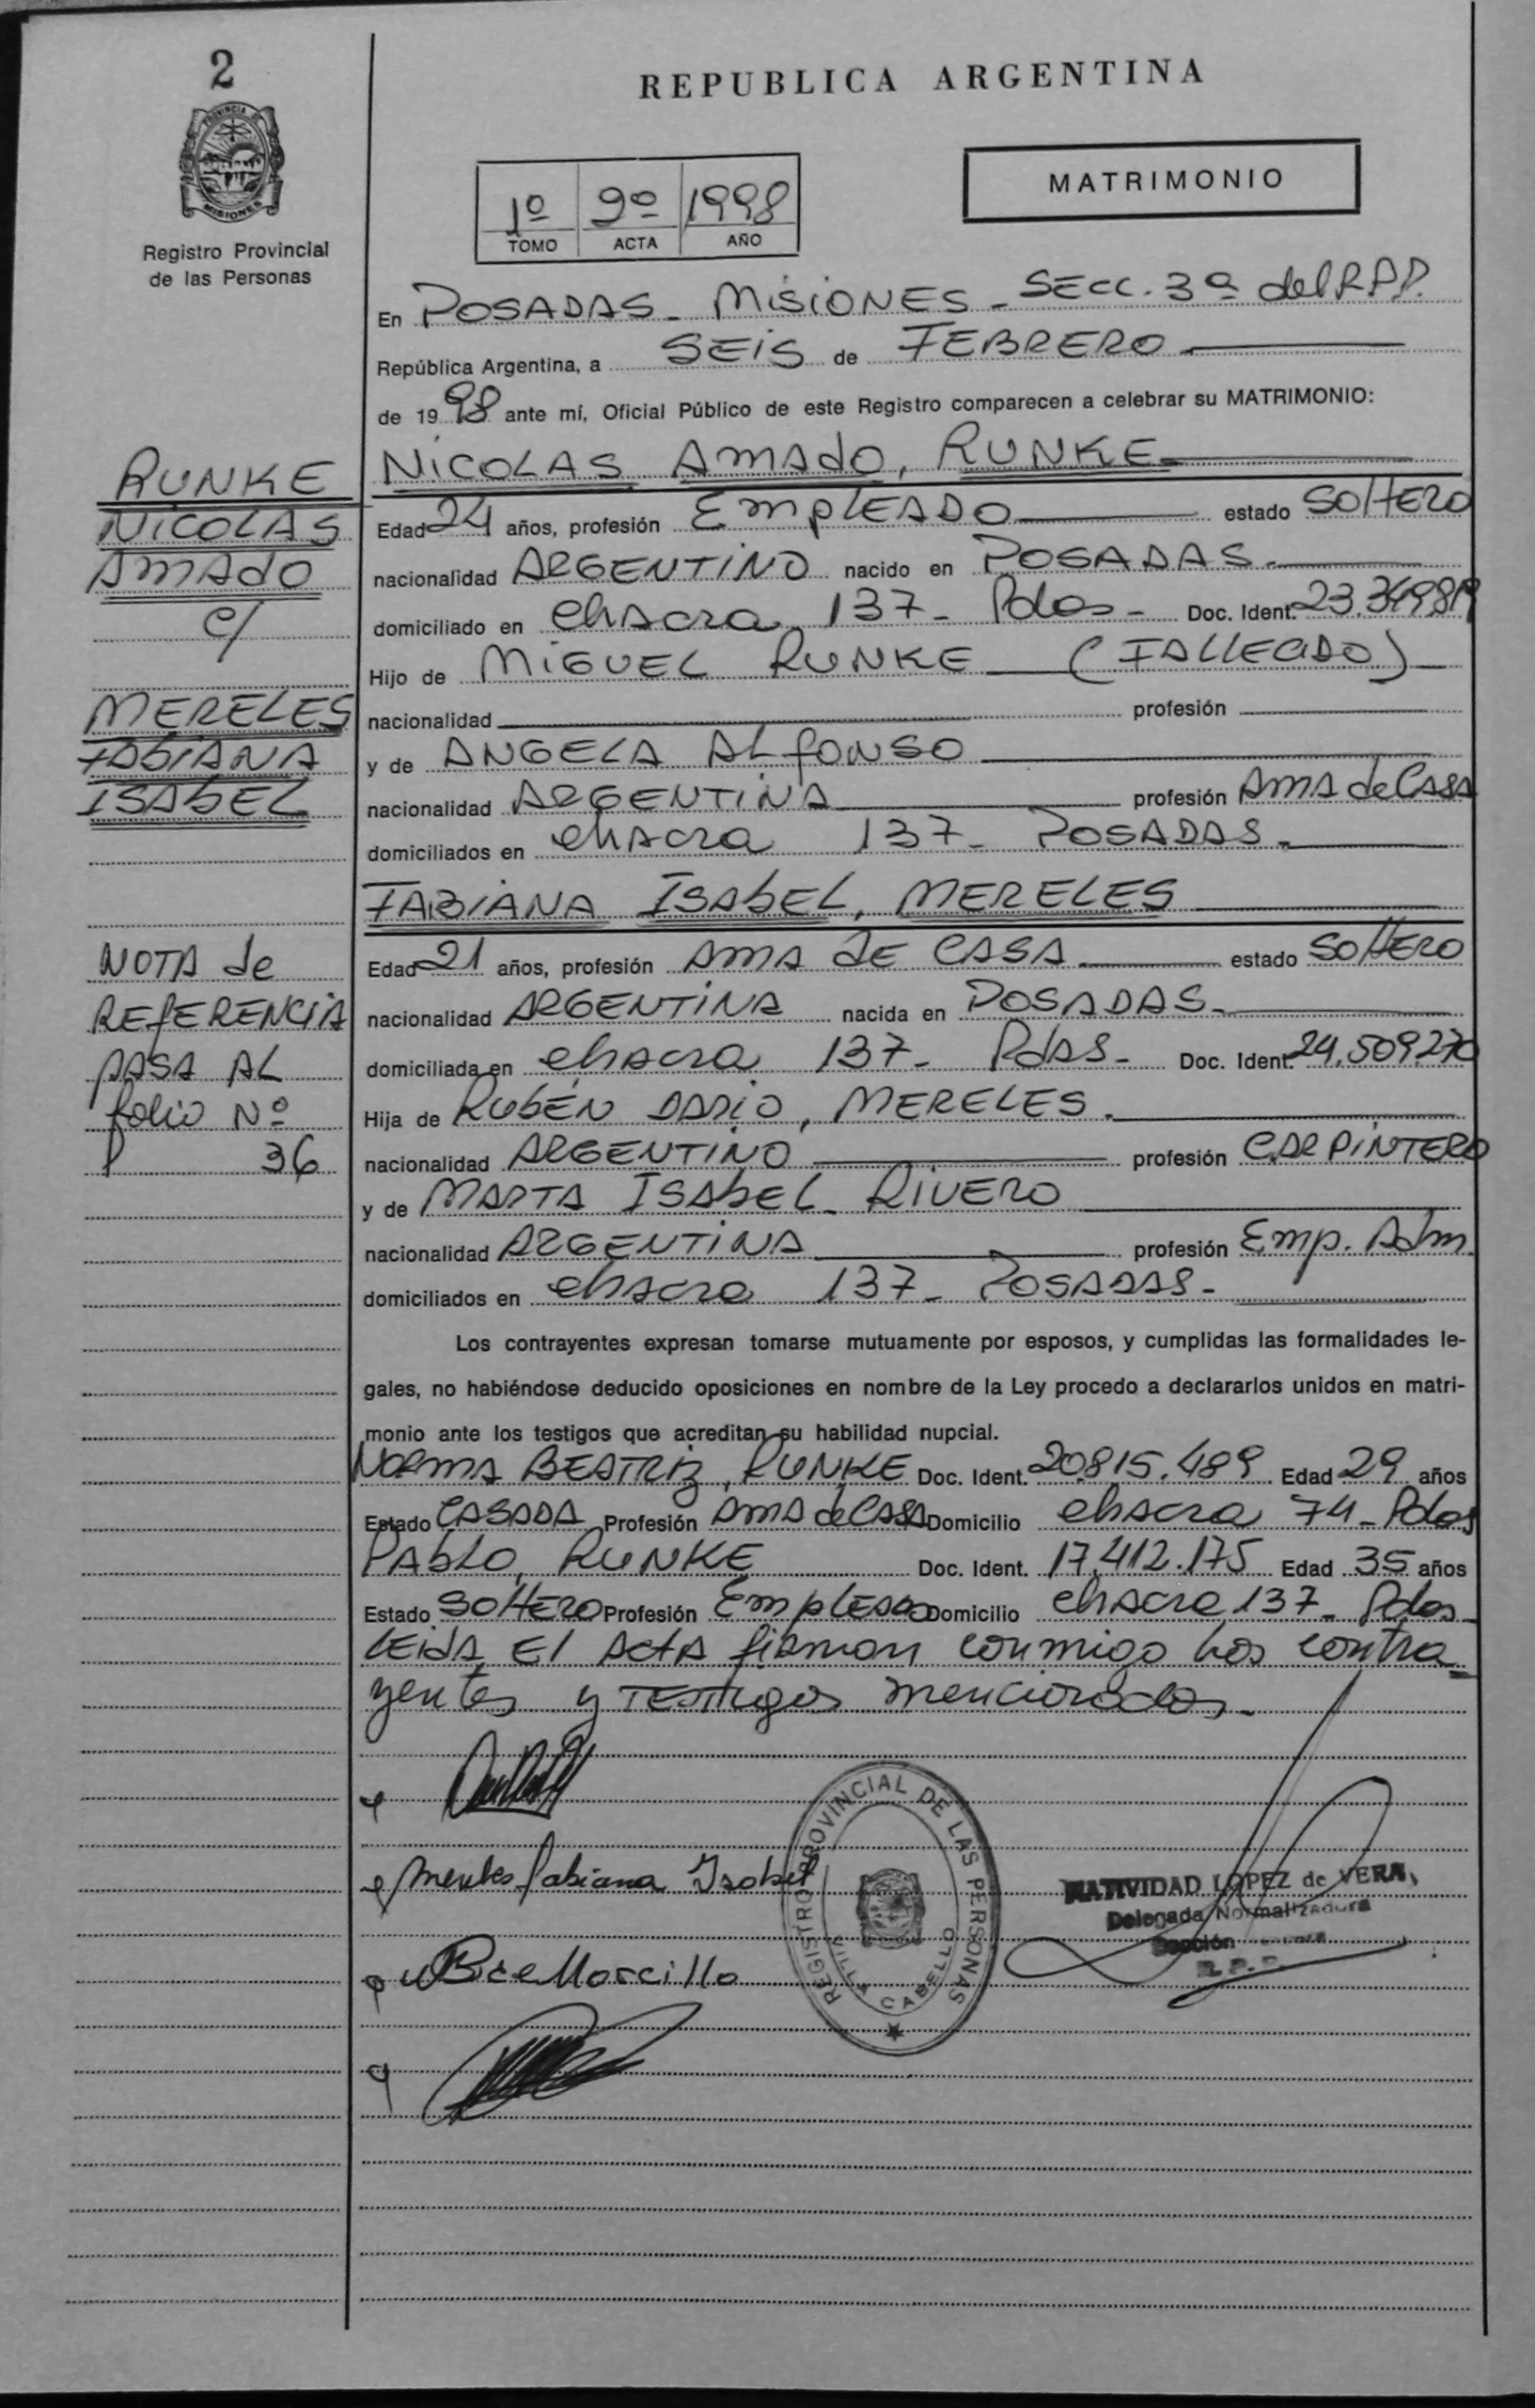 2
REPUBLICA ARGENTINA
PROVINCIA DE
MISIONES
Registro Provincial
de las Personas
MATRIMONIO
1º 9º 1998
TOMO ACTA AÑO
En POSADAS - MISIONES - SECC. 3ª del R.P.P.
República Argentina, a SEIS de FEBRERO
de 1998 ante mí, Oficial Público de este Registro comparecen a celebrar su MATRIMONIO:
NICOLAS AMADO, RUNKE
Edad 24 años, profesión EMPLEADO estado SOLTERO
nacionalidad ARGENTINO nacido en POSADAS.
domiciliado en chacra 137 - Pdas - Doc. Ident. 23.349.819
Hijo de MIGUEL RUNKE (FALLECIDO)
nacionalidad profesión
y de ANGELA ALFONSO
nacionalidad ARGENTINA profesión AMA de CASA
domiciliados en chacra 137 - POSADAS -
FABIANA ISABEL, MERELES
Edad 21 años, profesión AMA DE CASA estado SOLTERO
nacionalidad ARGENTINA nacida en POSADAS -
domiciliada en chacra 137 - Pdas - Doc. Ident. 24.509.270
Hija de RUBÉN DARIO, MERELES.
nacionalidad ARGENTINO profesión CARPINTERO
y de MARTA ISABEL RIVERO
nacionalidad ARGENTINA profesión Emp. Adm
domiciliados en chacra 137 - POSADAS -
Los contrayentes expresan tomarse mutuamente por esposos, y cumplidas las formalidades le-
gales, no habiéndose deducido oposiciones en nombre de la Ley procedo a declararlos unidos en matri-
monio ante los testigos que acreditan su habilidad nupcial.
NORMA BEATRIZ, RUNKE Doc. Ident. 20.815.489 Edad 29 años
Estado CASADA Profesión AMA de CASA Domicilio chacra 74 - Pdas
PABLO, RUNKE Doc. Ident. 17.412.175 Edad 35 años
Estado SOLTERO Profesión EMPLEADO Domicilio chacra 137 - Pdas -
LEIDA El ACTA firman conmigo los contra-
yentes y TESTIGOS mencionados -
RUNKE
NICOLAS
AMADO
c/
MERELES
FABIANA
ISABEL
NOTA de
REFERENCIA
PASA AL
folio Nº
36
Mereles fabiana Isabel
REGISTRO PROVINCIAL DE LAS PERSONAS
VILLA CABELLO
NATIVIDAD LOPEZ de VERA
Delegada Normalizadora
Sección
R.P.P.